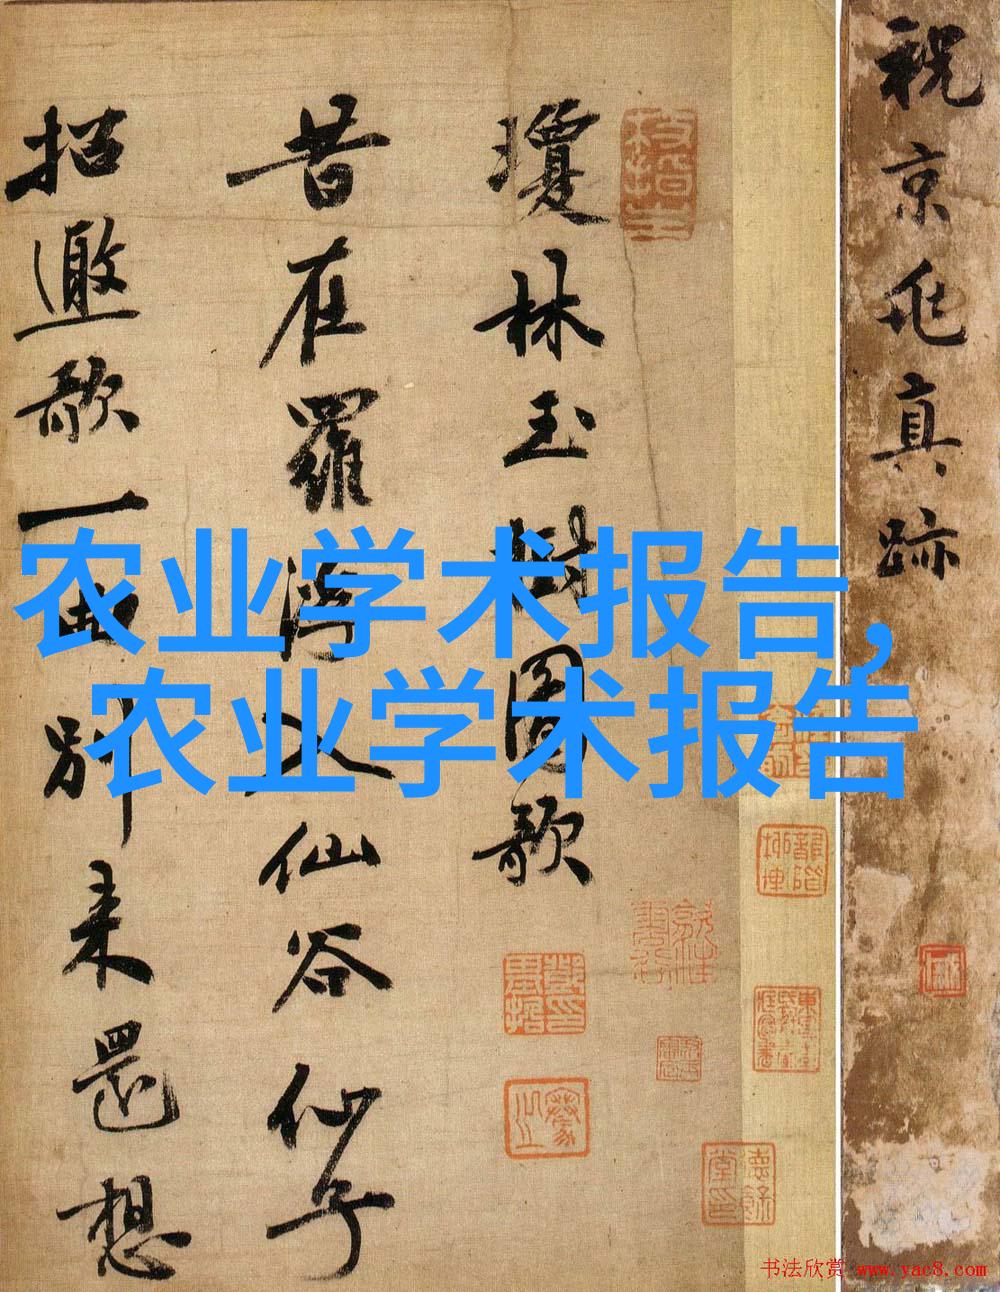 祝京兆真跡
瓊林玉樹圖歌
昔在羅浮
仙谷仙子
招邀歌一曲別來還想
农业学术报告，
农业学术报告
书法欣赏 www.yac8.com